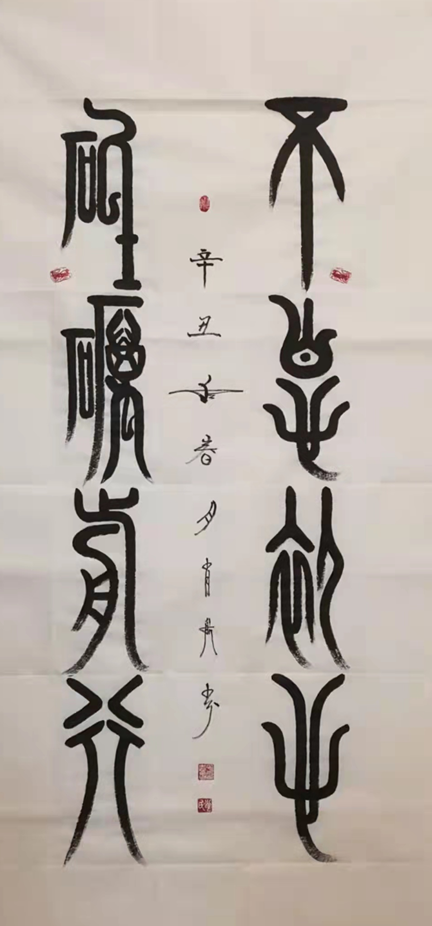 不忘初心
砥礪前行
辛丑年春月肖书